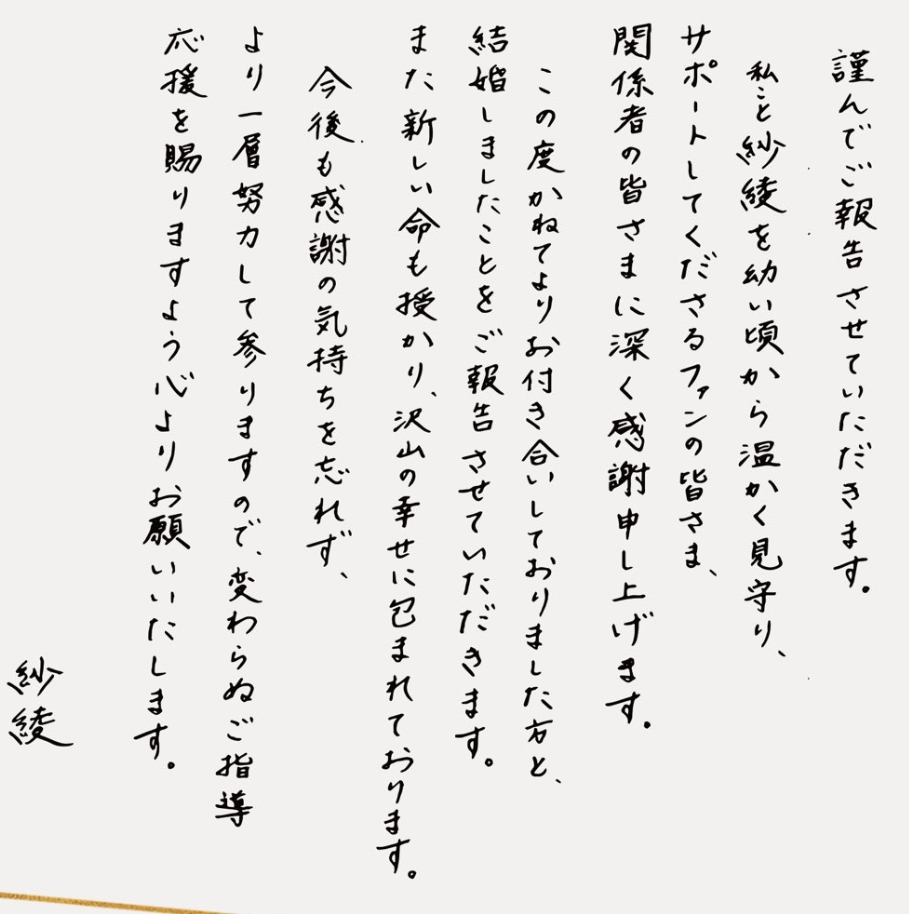 謹んでご報告させていただきます。
私こと紗綾を幼い頃から温かく見守り、
サポートしてくださるファンの皆さま、
関係者の皆さまに深く感謝申し上げます。
この度かねてよりお付き合いしておりました方と、
結婚しましたことをご報告させていただきます。
また新しい命も授かり、沢山の幸せに包まれております。
今後も感謝の気持ちを忘れず、
より一層努力して参りますので、変わらぬご指導
応援を賜りますよう心よりお願いいたします。
紗綾